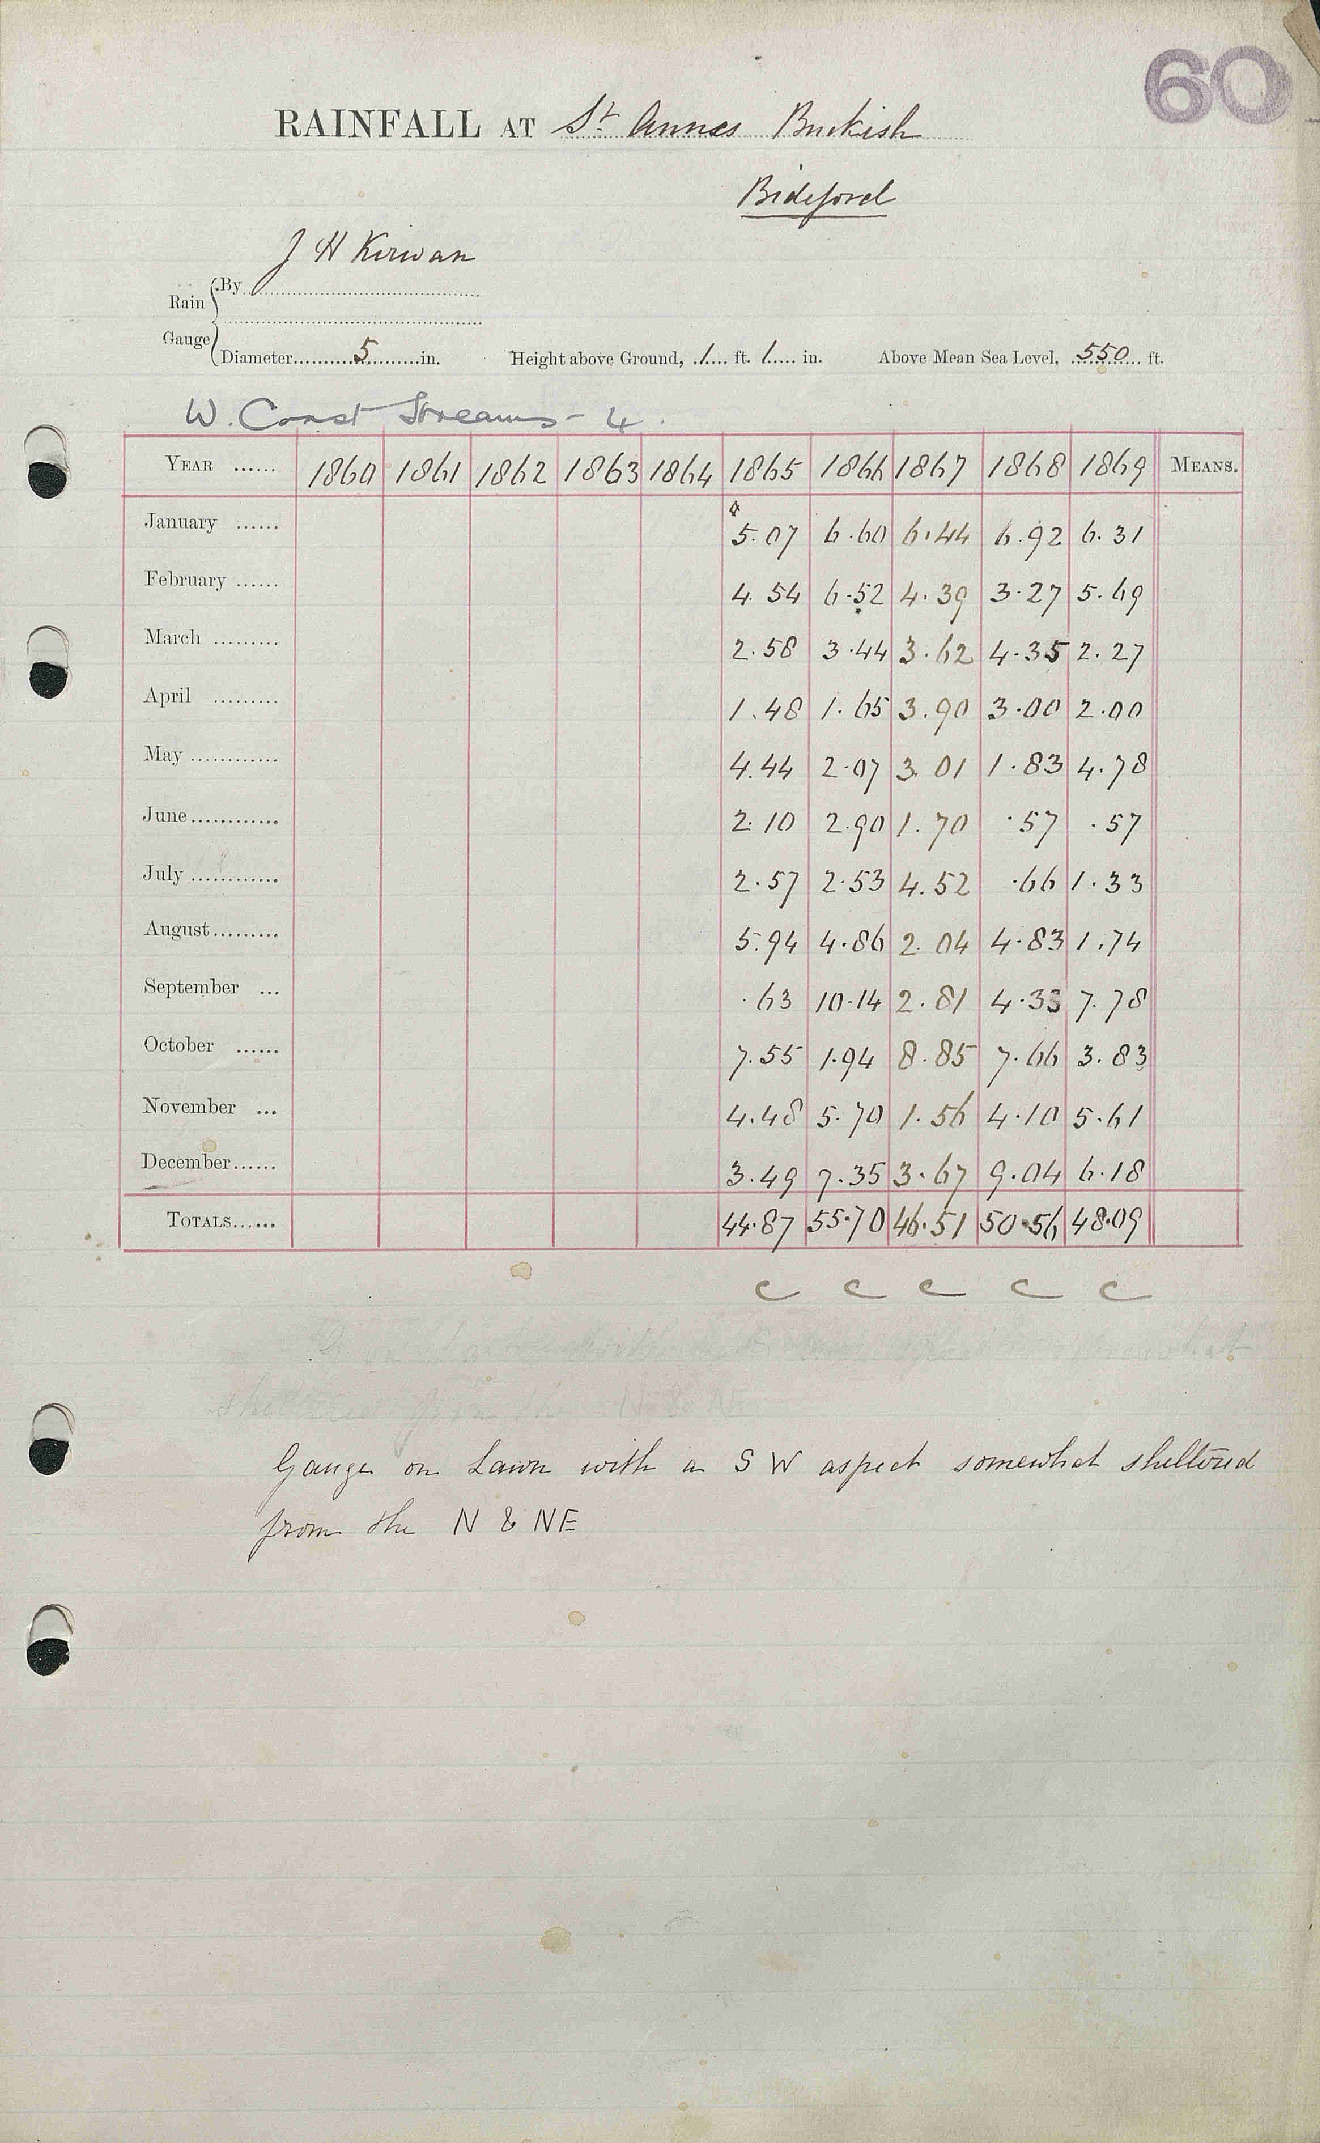 60
RAINFALL AT St Annes Buckish
Bideford
J H Kirwan
Rain Gauge
By
Diameter 5 in. Height above Ground, 1 ft. 1 in. Above Mean Sea Level, 550 ft.
W. Coast Streams - 4.
YEAR 1860 1861 1862 1863 1864 1865 1866 1867 1868 1869 MEANS.
January 5.07 6.60 6.44 6.92 6.31
February 4.54 6.52 4.39 3.27 5.69
March 2.58 3.44 3.62 4.35 2.27
April 1.48 1.65 3.90 3.00 2.00
May 4.44 2.07 3.01 1.83 4.78
June 2.10 2.90 1.70 .57 .57
July 2.57 2.53 4.52 .66 1.33
August 5.94 4.86 2.04 4.83 1.74
September .63 10.14 2.81 4.33 7.78
October 7.55 1.94 8.85 7.66 3.83
November 4.48 5.70 1.56 4.10 5.61
December 3.49 7.35 3.67 9.04 6.18
TOTALS 44.87 55.70 46.51 50.56 48.09
c c c c c
Gauge on Lawn with a S W aspect somewhat sheltered
from the N & NE